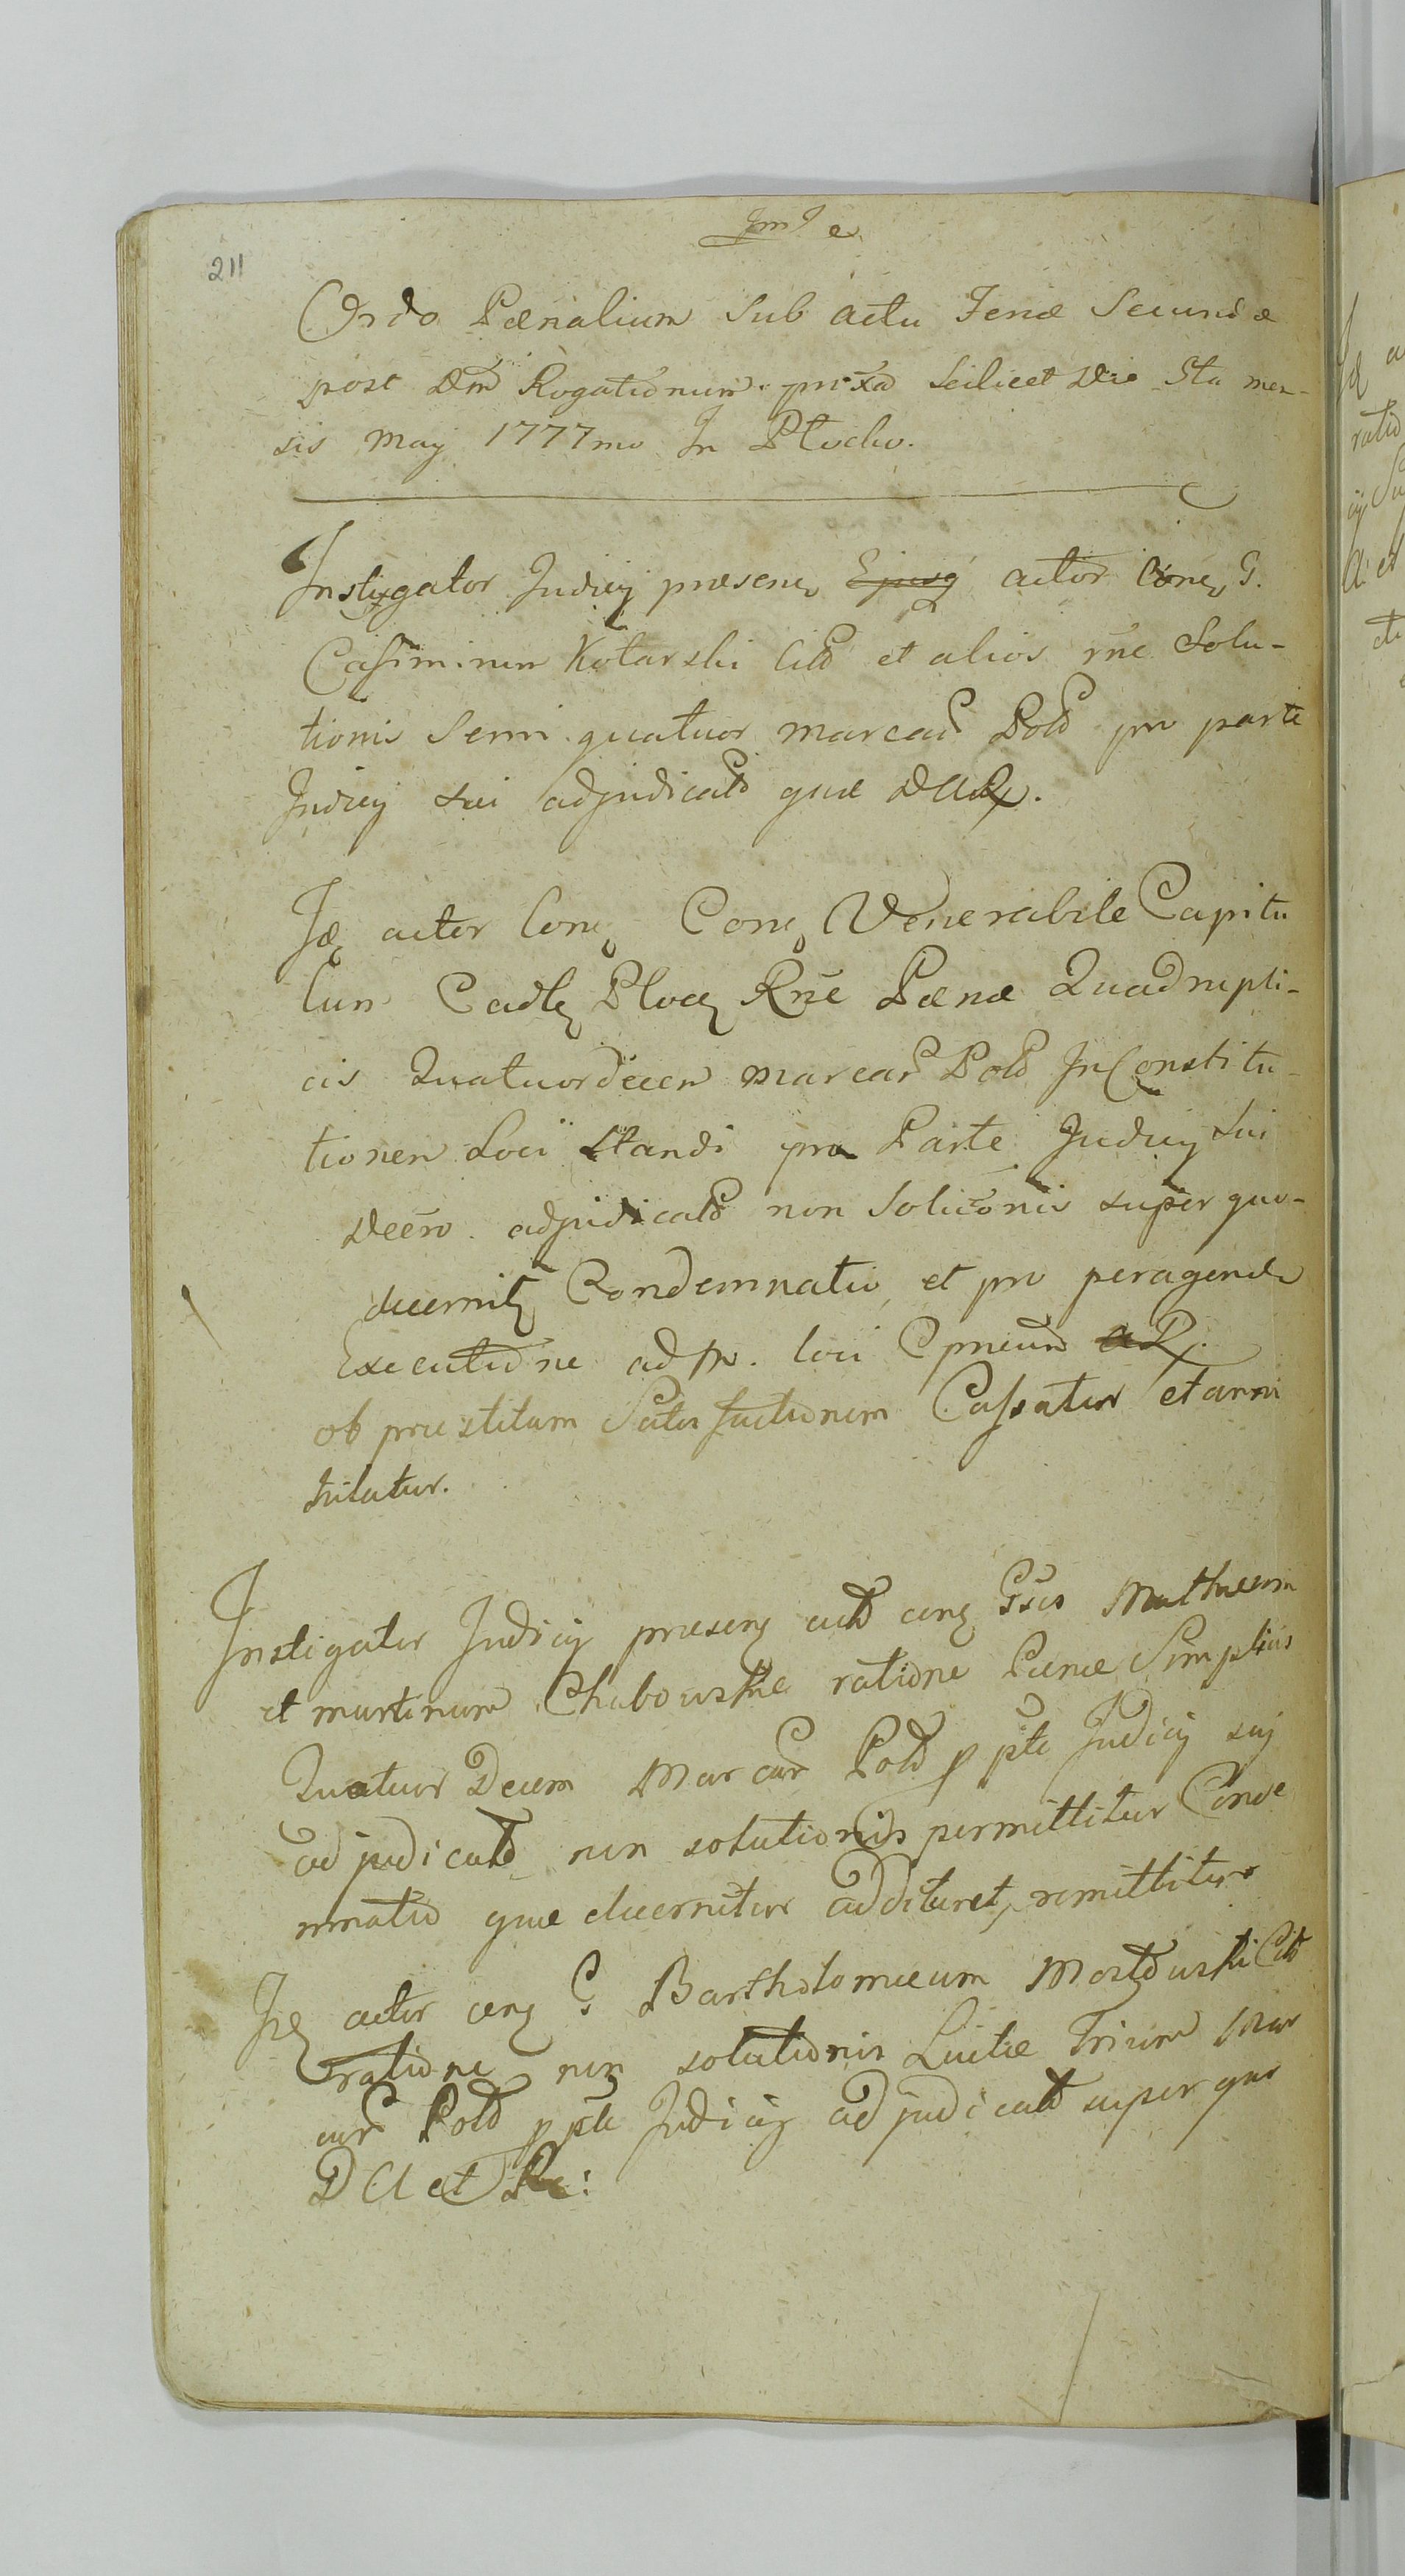 211
Ordo Pœnalium Sub actu Feriæ Secundæ
post Dm̃ Rogationum prox̃a Scilicet Die 5ta men-
sis May 1777mo In Plocko.
Instygator Judicij præsens actor Con̄. G.
Casimirum Kotarski Cito et alios rñe Solu-
tionis Semi quatuor marcar Pold pro parte
Judicij sui adjudicatd quæ DAR.
Id actor Con Venerabile Capitu
lum Cadle Ploc Rñe Pœnæ Quadrupli-
cis Quatuordecem marcar Pold In Constitu-
tionem Loci Standi pro Parte Judicij sui
Decro adjudicatd non Solicõnis super quo-
decernit Condemnatio et pro peragenda
Executione ad loci
ob præstitam Satisfactionem Cassatur et anni
hilatur.
Instigator Judicij præsens actd con Gsos Mathæum
et martinum Chabowskie ratione Pænæ Simplicis
Quatuor Decem Marcar Pold p pte Judicij suj
adjudicatd non solutionis permittitur Conde
mnatio quæ decernitur additur et remittitur
Ide actor con G Bartholomæum Cit
ratione non solutionis Luitæ Trium Mar
car Pold p pte Judicij adjudicatd super quo
DA et R: